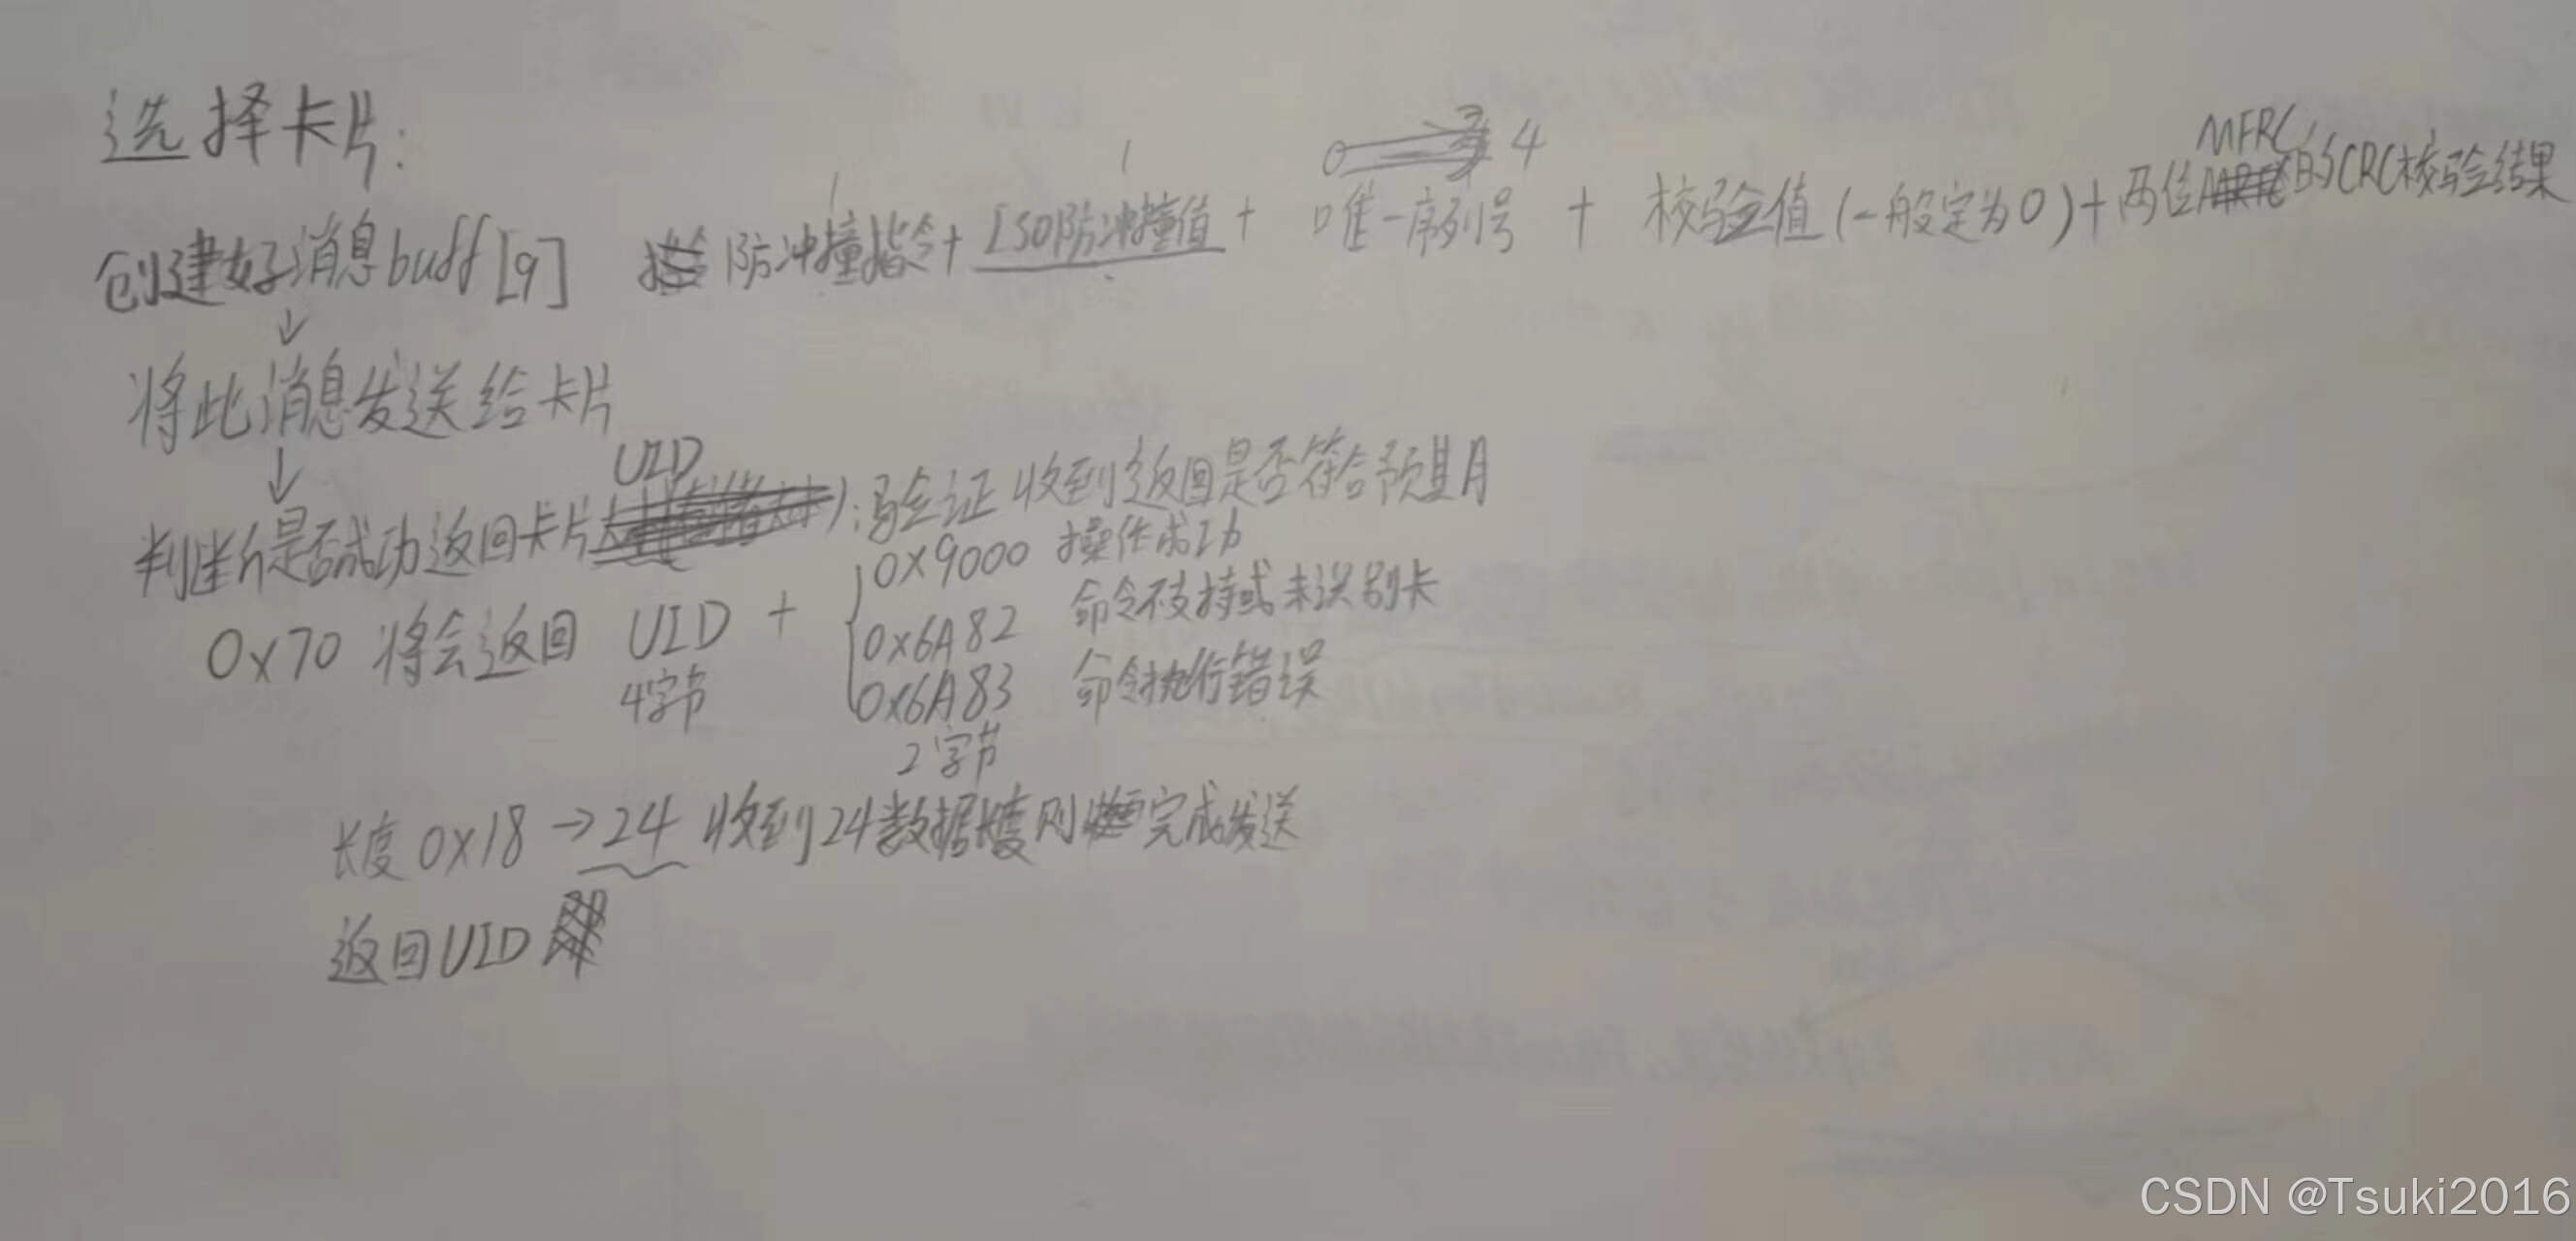 选择卡片：
1 1 4
创建好消息buff[9] 防冲撞指令+ ISO防冲撞值 + 唯一序列号 + 校验值(一般定为0)+两位MFRC的CRC校验结果
↓
将此消息发送给卡片
↓
判断是否成功返回卡片UID):验证收到返回是否符合预期
0x70 将会返回 UID + { 0x9000 操作成功
0x6A82 命令不支持或未识别卡
0x6A83 命令执行错误
4字节 2字节
长度0x18 →24 收到24数据长度则完成发送
返回UID
CSDN @Tsuki2016